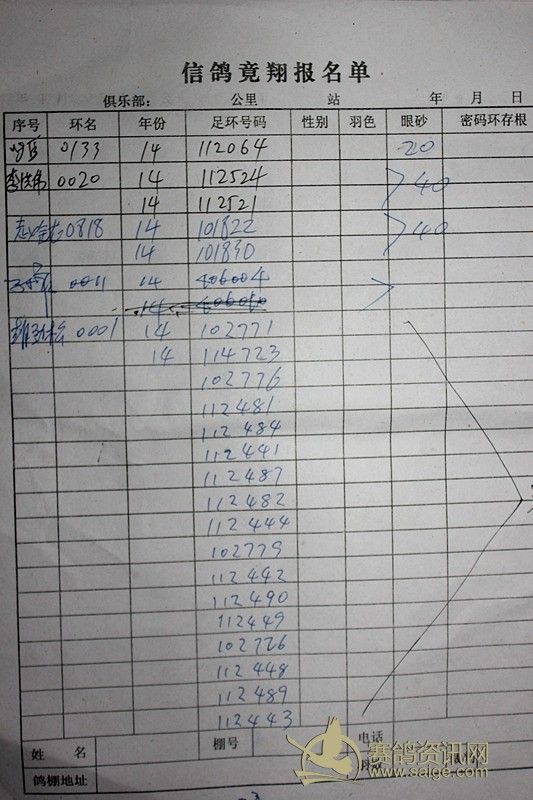 信鸽竟翔报名单
俱乐部: 公里 站 年 月 日
序号 环名 年份 足环号码 性别 羽色 眼砂 密码环存根
0133 14 112064 20
0020 14 112524 40
14 112521
0818 14 101822 40
14 101890
0011 14 406004
14
0001 14 102771
14 114723
102776
112481
112484
112441
112487
112482
112444
102779
112442
112490
112449
102726
112448
112489
112443
姓名 棚号 电话
鸽棚地址
赛鸽资讯网
www.saige.com